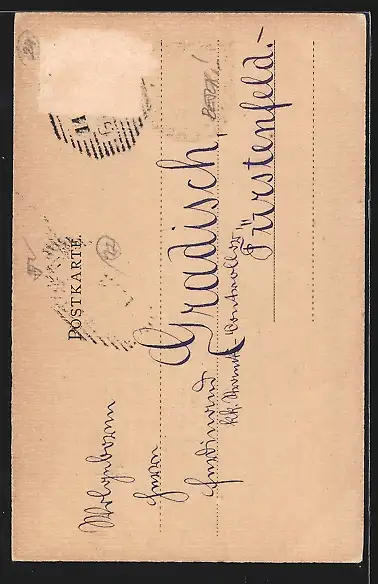 POSTKARTE.
Wolgeboren
Herrn
Ferdinand Gradisch,
kk. Controllor
Fürstenfeld.-
11